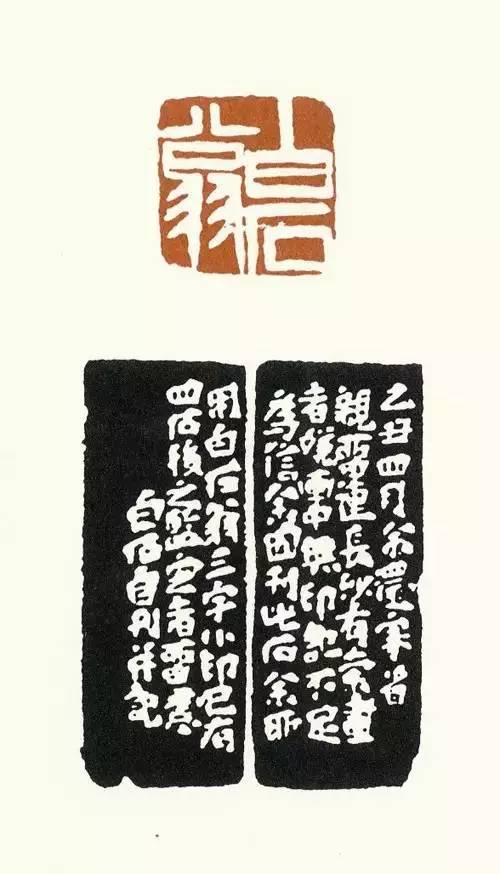 白石
翁
乙丑四月余還家省
親留連長沙有索畫
者嫌無印記不足
為信余因刊此石余所
用白石翁三字小印已有
四石後之鑒定者留意
白石自刊并記